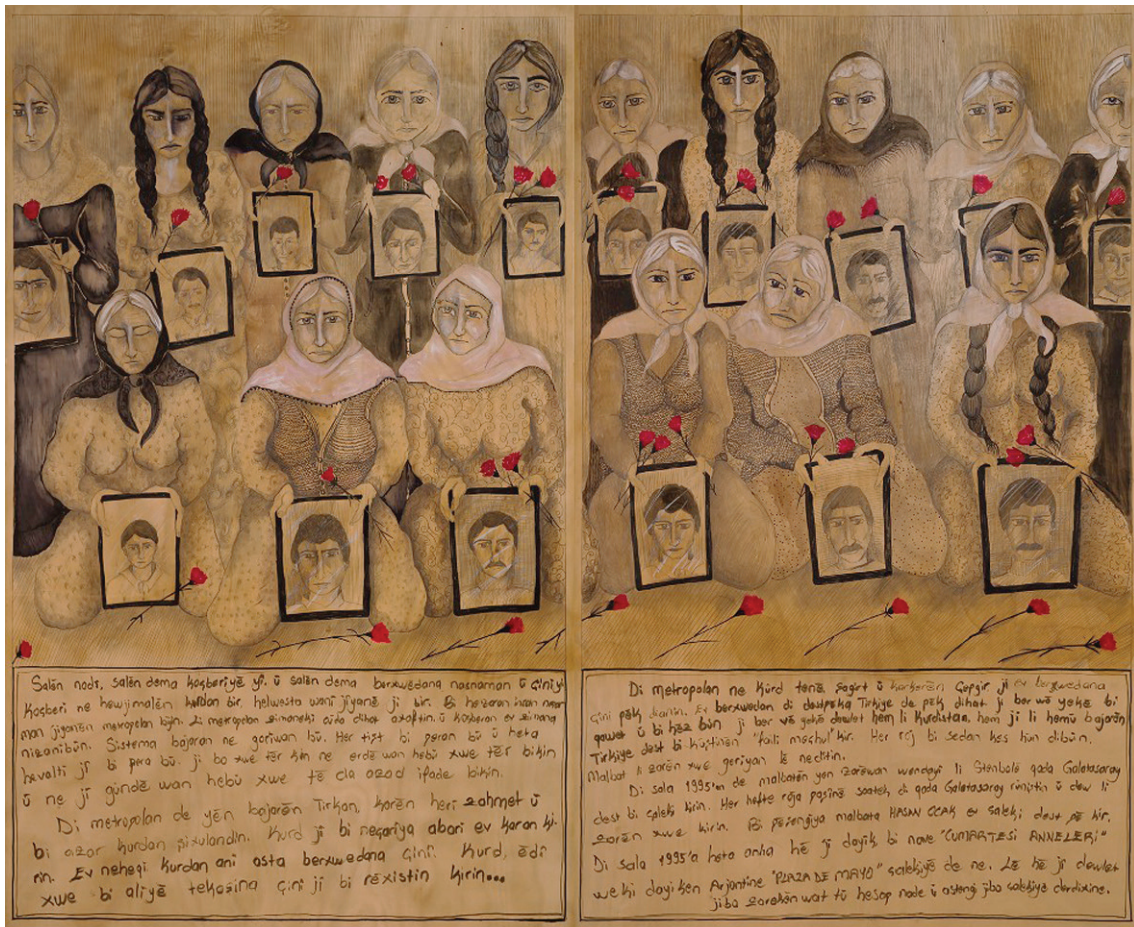 Salên nodî, salên dema koçberiyê yî. û salên dema berxwedana nasnaman û Çiniyî
Koçberi ne hewjimalên kurdan bir. helwesta wanî jiyanê ji bir. Bi hezaran insan
man jiyanên metropolan bûn. Li metropolan zimanekî cuda dihat axaftin. û Koçberan ev zimana
nizanibûn. Sistema bajaran ne goriwan bû. Her tişt bi peran bû û heta
hevaltî jî bi pera bû. ji bo xwe têr kin ne erdê wan hebû xwe têr bikin
û ne jî gundê wan hebû xwe tê da azad ifade bikin.
Di metropolan de yên bajarên Tirkan, karên herî zahmet û
bi azar kurdan dixulandin. Kurd ji bi neçariya abori ev karan ki-
rin. Ev neheqi kurdan anî asta berxwedana Çinî. Kurd, êdî
xwe bi aliyê tekoşina çinî ji bi rêxistin kirin...
Di metropolan ne Kurd tenê şagirt û karkerên Çepgir ji ev berxwedana
çini pêk dianîn. Ev berxwedan di destpêka Tirkiye de pêk dihat ji ber wê yekê bi
qawet û bi hêz bûn ji ber vê yekê dewlet hem li Kurdistan, hem ji li hemû bajarên
Tirkiye dest bi kuştinên "faili meçhul" kir. Her roj bi sedan kes hun dibûn.
Malbat li zarên xwe geriyan lê neditin.
Di sala 1995'an de malbatên yên zarêwan wendayî li Stenbolê qada Galatasaray
dest bi çalak kirin. Her hefte roja paşinê saatek, di qada Galatasaray rûniştin û dew li
zarên xwe kirin. Bi pêşengiya malbata HASAN OCAK ev çalaki dest pê kir.
Di sala 1995'a heta anha hê ji dayik bi navê "CUMARTESİ ANNELERİ"
weki dayiken Arjantine "PLAZA DE MAYO" çalekiyê de ne. Lê hê ji dewlet
jibo zarokên wat tû hesap node û astengi jibo çalekiyê derdixine.